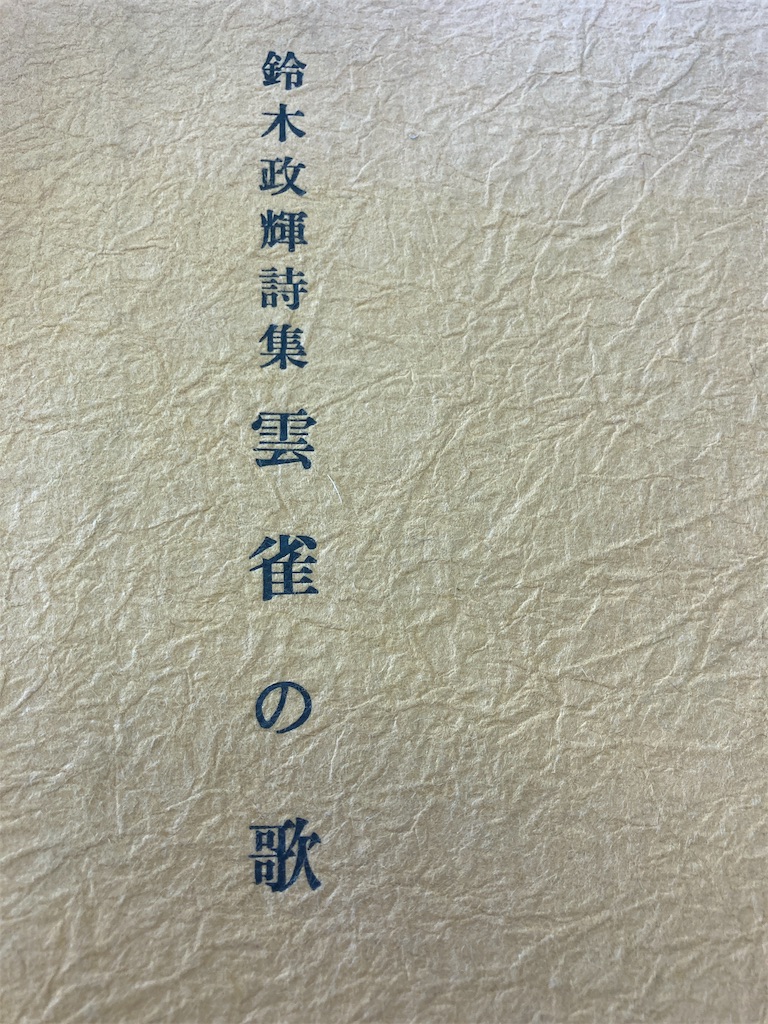 鈴木政輝詩集 雲雀の歌